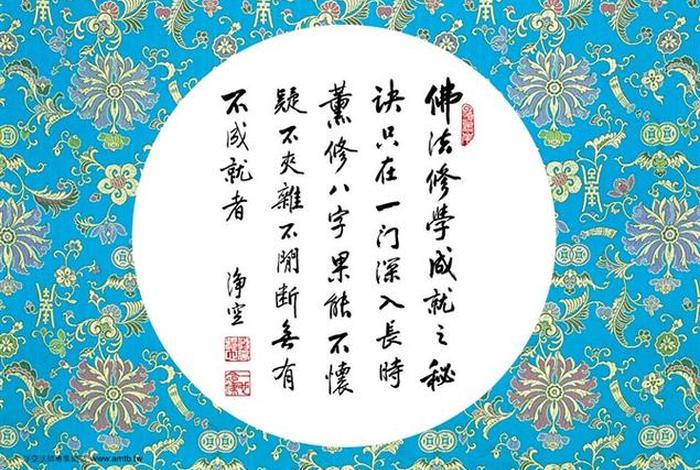 佛法修學成就之秘
诀只在一门深入長時
薰修八字果能不懷
疑不夾雜不間断无有
不成就者
淨空
www.amtb.tw